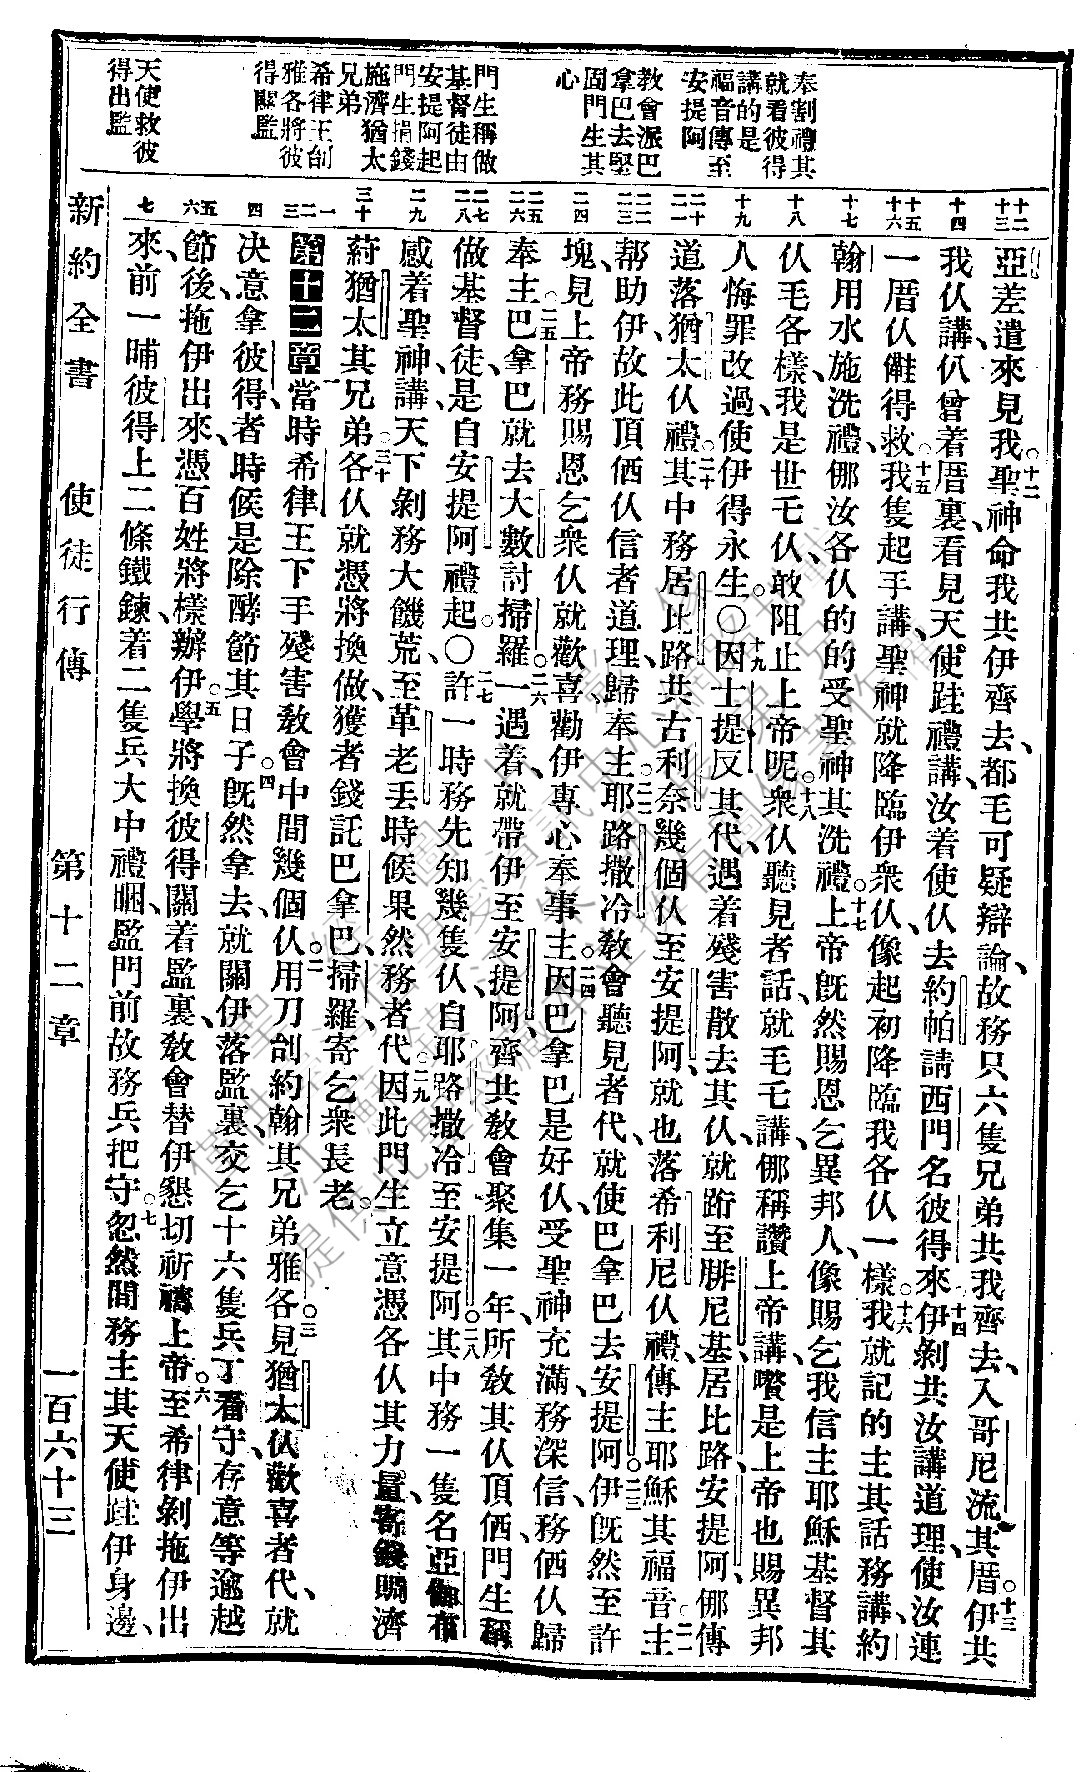 奉割禮其
就看彼得
講的是
福音傳至
安提阿
教會派巴
拿巴去堅
固門生其
心
門生稱做
基督徒由
安提阿起
門生捐錢
施濟猶太
兄弟
希律王刣
雅各將彼
得關監
天使救彼
得出監
亞差遣來見我。十二聖神命我共伊齊去、都毛可疑辯論、故務只六隻兄弟共我齊去、入哥尼流其厝。十三伊共
我仈講、仈曾着厝裏、看見天使跬禮講、汝着使仈去約帕請西門名彼得來、十四伊剝共汝講道理、使汝連
一厝仈𠆧得救。十五我隻起手講、聖神就降臨伊衆仈、像起初降臨我各仈一樣。十六我就記的主其話務講、約
翰用水施洗禮、㑚汝各仈的的受聖神其洗禮。十七上帝旣然賜恩乞異邦人、像賜乞我信主耶穌基督其
仈毛各樣、我是世乇仈、敢阻止上帝呢。十八衆仈聽見者話、就毛乇講、㑚稱讚上帝講、囋是上帝也賜異邦
人悔罪改過、使伊得永生。○十九因士提反其代、遇着殘害散去其仈、就跀至腓尼基、居比路、安提阿、㑚傳
道落猶太仈禮。二十其中務居比路共古利奈幾個仈、至安提阿、就也落希利尼仈禮、傳主耶穌其福音。二一主
帮助伊、故此頂㑚仈信者道理、歸奉主。二二耶路撒冷教會聽見者代、就使巴拿巴去安提阿。二三伊旣然至許
塊、見上帝務賜恩乞衆仈、就歡喜、勸伊專心奉事主。二四因巴拿巴是好仈、受聖神充滿、務深信、務㑚仈歸
奉主。二五巴拿巴就去大數討掃羅。二六一遇着、就帶伊至安提阿、齊共教會聚集一年、所教其仈頂㑚、門生稱
做基督徒、是自安提阿禮起。○二七許一時務先知幾隻仈、自耶路撒冷至安提阿。二八其中務一隻名亞伽布
感着聖神講、天下剝務大饑荒、至革老丟時候果然務者代。二九因此門生立意憑各仈其力量、寄錢賙濟
蒞猶太其兄弟。三十各仈就憑將換做、獲者錢託巴拿巴、掃羅寄乞衆長老。
第十二章 一當時希律王下手殘害教會中間幾個仈。二用刀刣約翰其兄弟雅各。三見猶太仈歡喜者代、就
决意拿彼得、者時候是除酵節其日子。四旣然拿去、就關伊落監裏、交乞十六隻兵丁看守、存意等逾越
節後、拖伊出來、憑百姓將樣辦伊。五學將換彼得關着監裏、教會替伊懇切祈禱上帝。六至希律剝拖伊出
來、前一晡彼得上二條鐵鍊、着二隻兵大中禮睏、監門前故務兵把守。七忽然間務主其天使跬伊身邊、
十二
十三
十四
十五
十六
十七
十八
十九
二十
二一
二二
二三
二四
二五
二六
二七
二八
二九
三十
一
二
三
四
五
六
七
新約全書 使徒行傳 第十二章 一百六十三